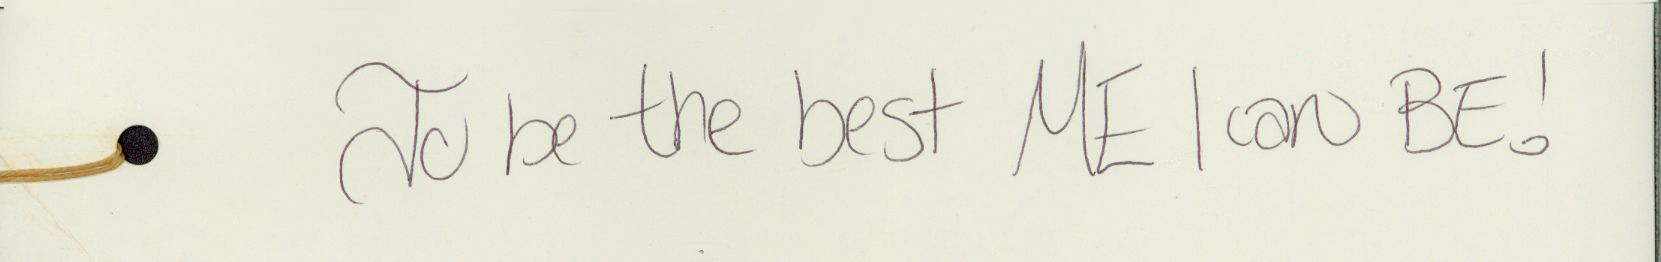 To be the best ME I can BE!